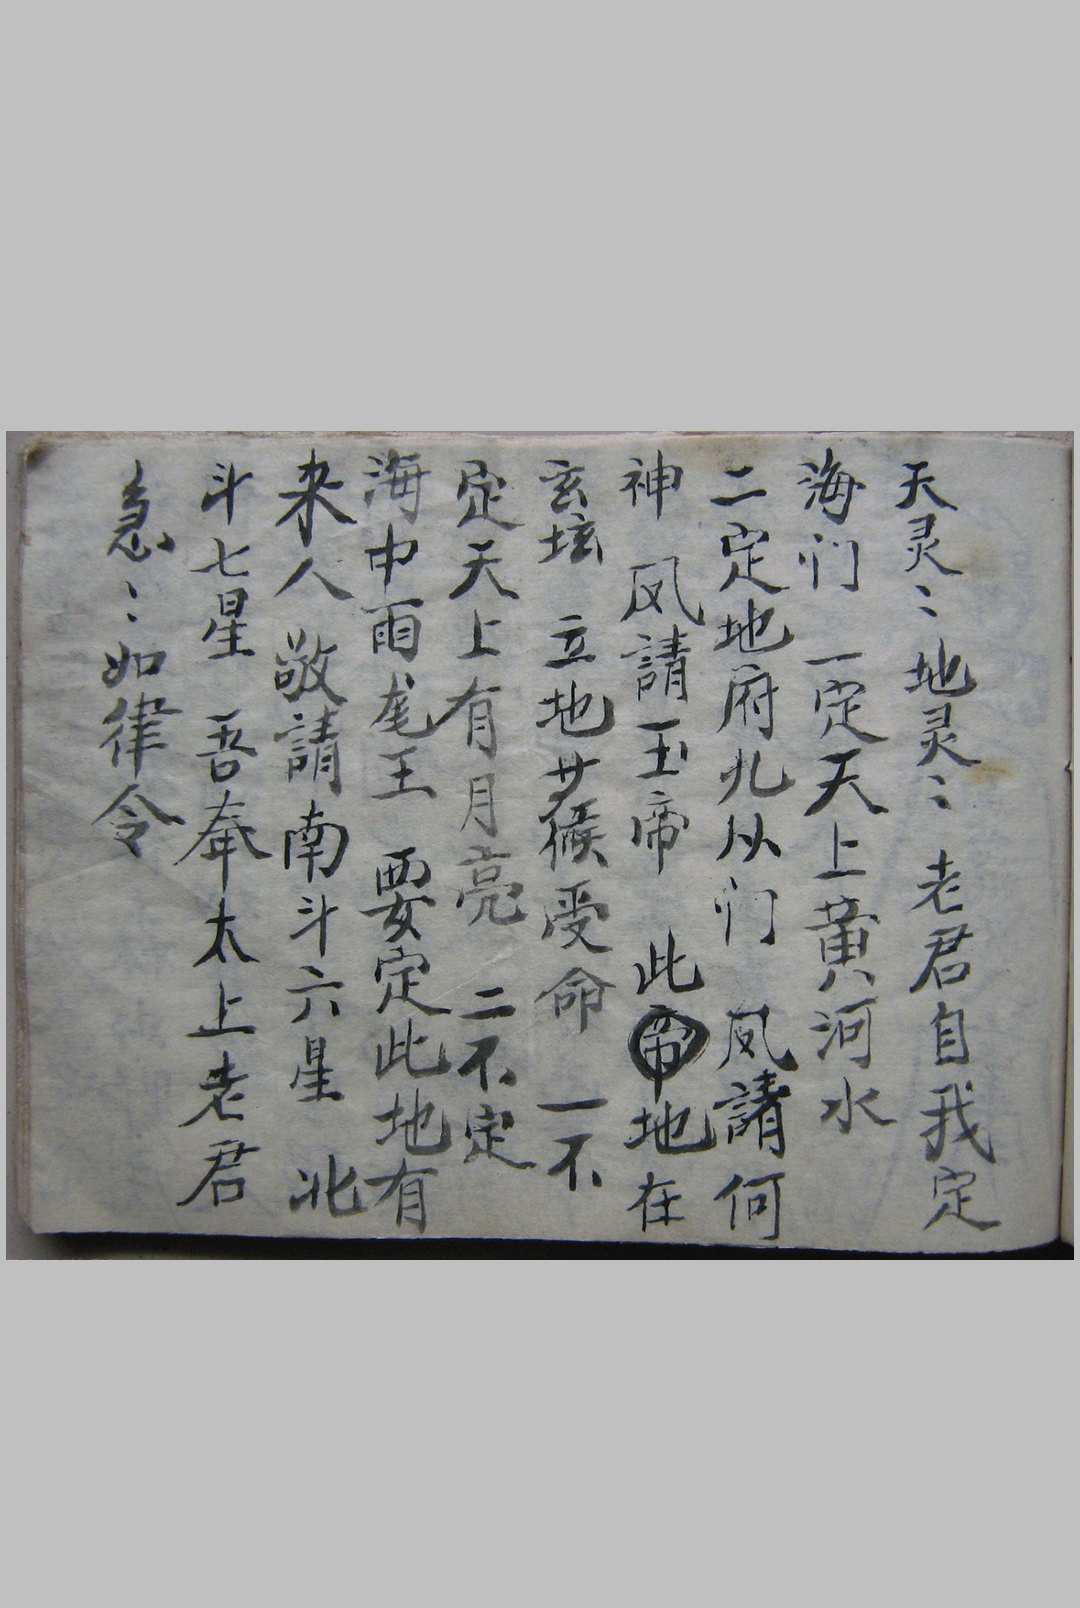 天灵〻地灵〻 老君自我定
海们 一定天上黄河水
二定地府九从们 凤請何
神 凤請玉帝 此帝地在
玄坛 立地等候受命 一不
定天上有月亮 二不定
海中雨龙王 要定此地有
来人 敬請南斗六星 北
斗七星 吾奉太上老君
急〻如律令